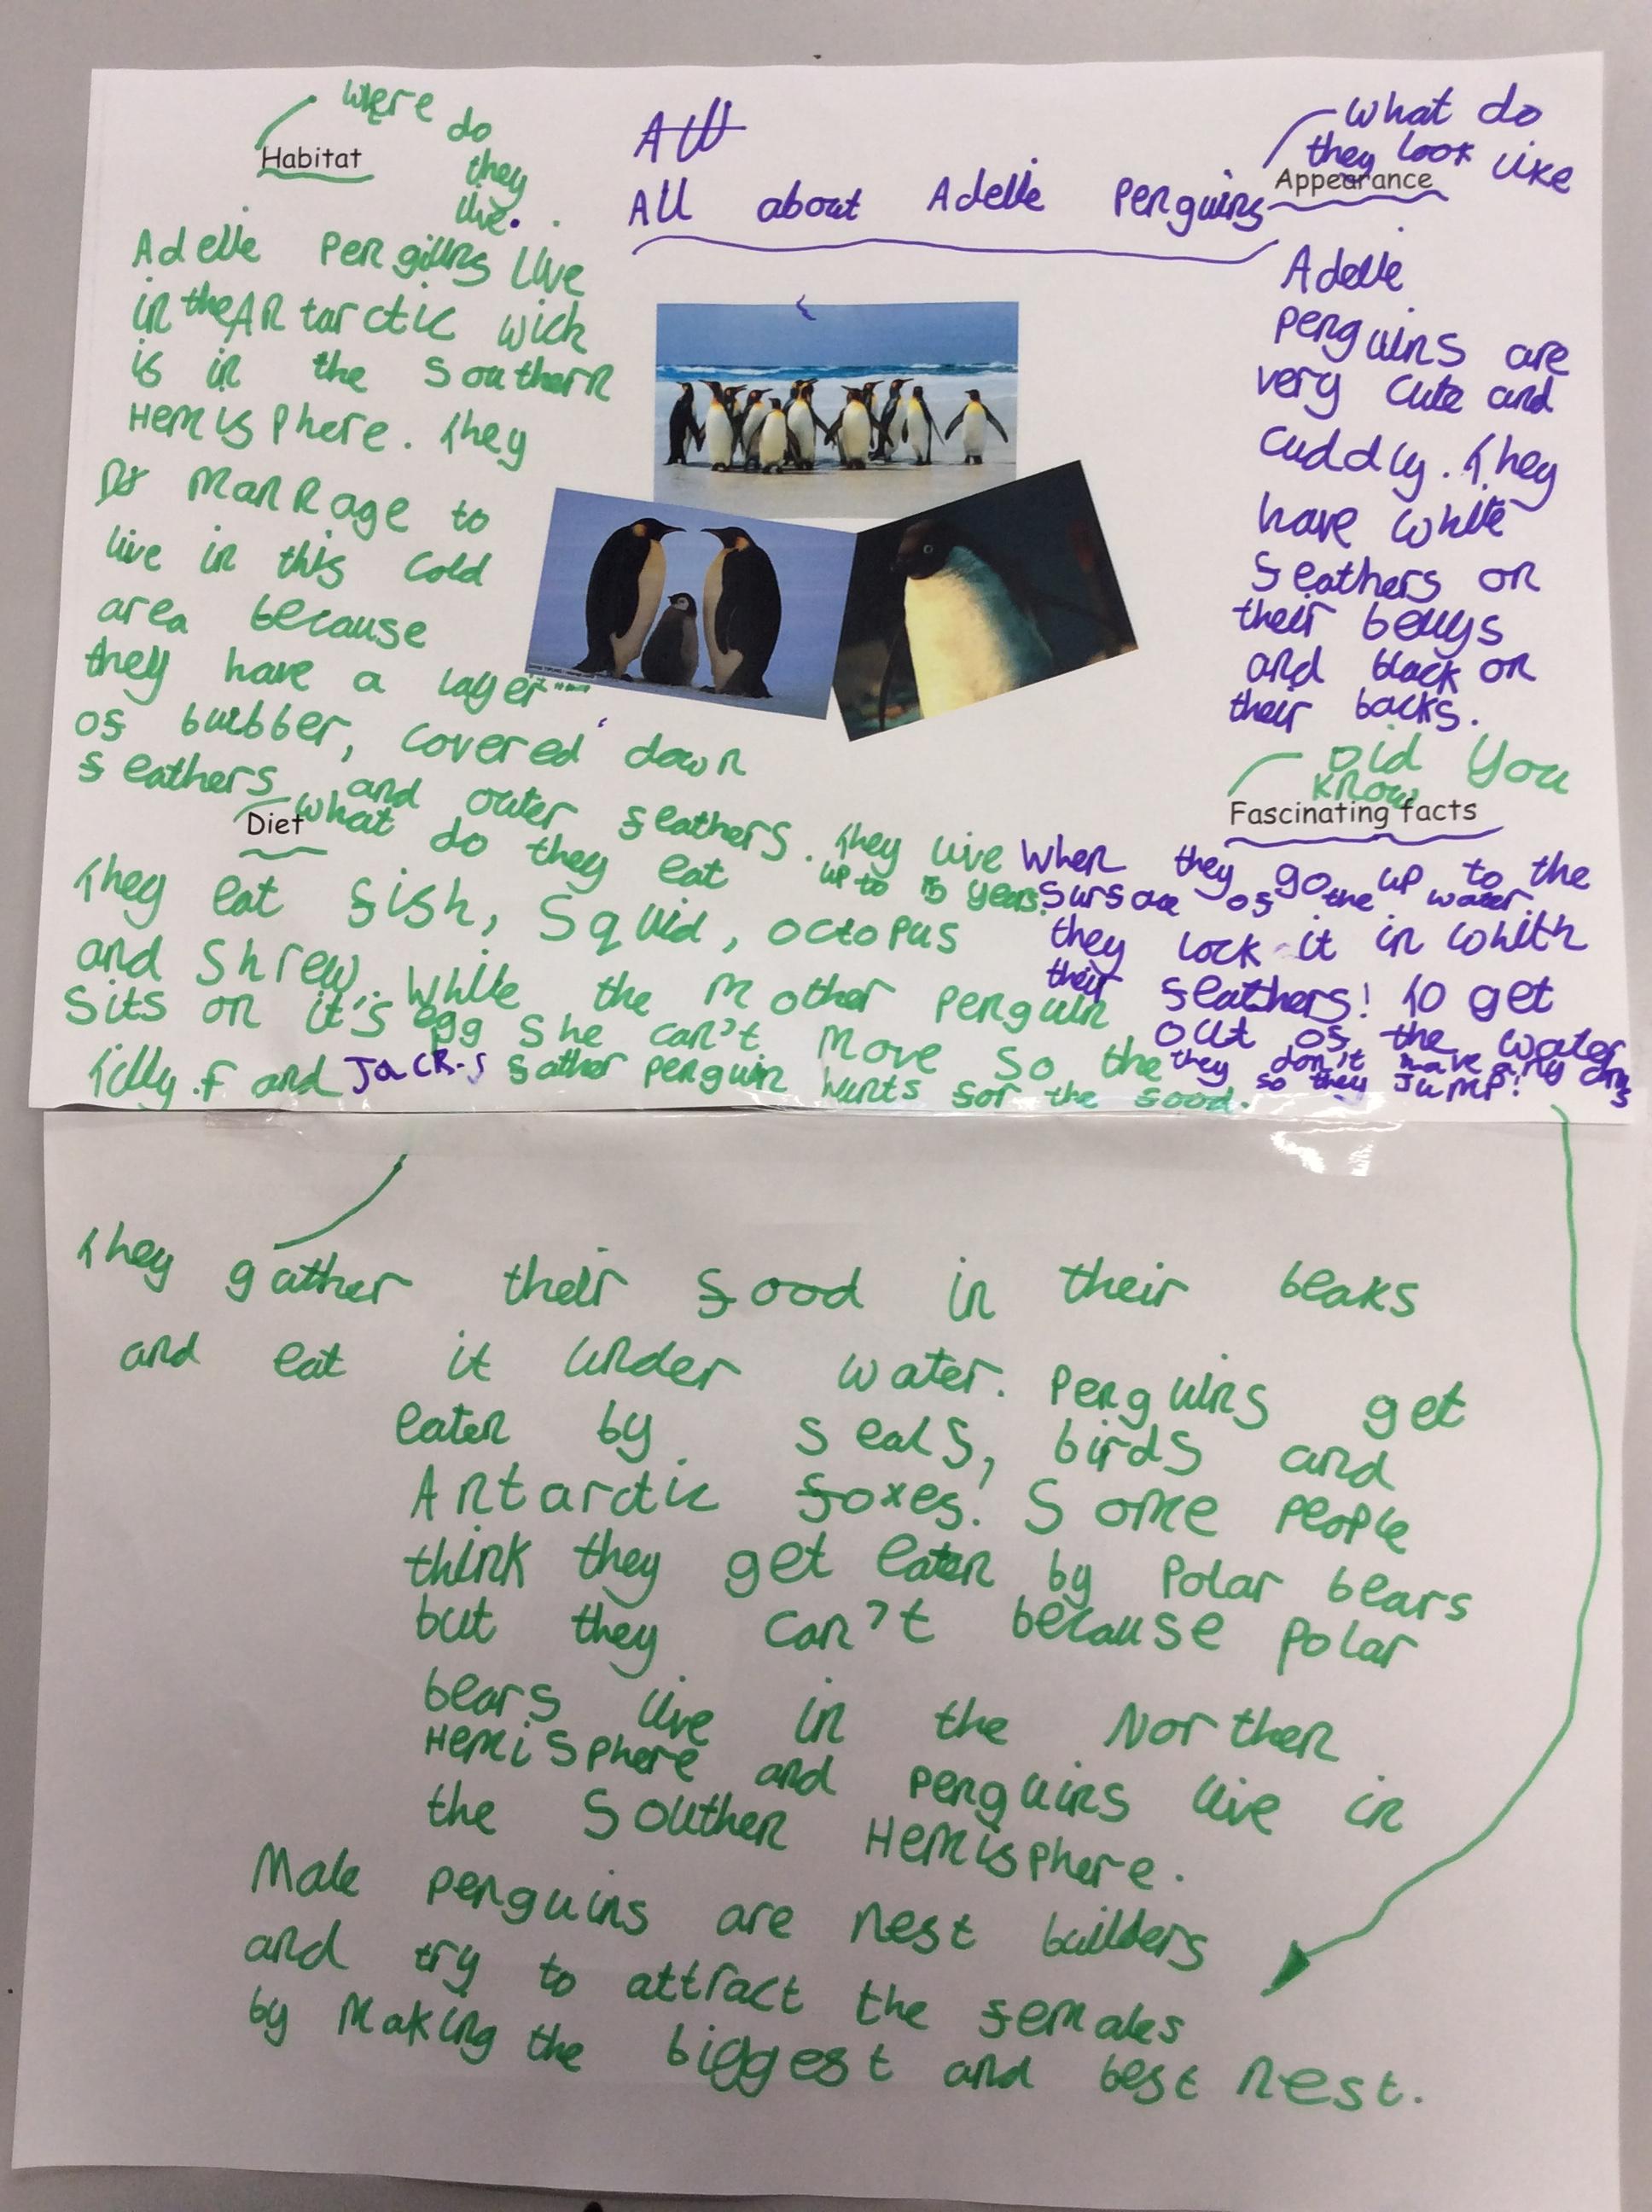 All
All about Adelie Penguins
Where do
they
live.
Habitat
Adelie Pengiuns live
in the Antarctic wich
is in the Southern
Hemisphere. They
mannage to
live in this cold
area because
they have a layer
of bulbber, covered down
feathers and outer feathers. They live
up to 15 years.
What do
they look like
Appearance
Adelie
penguins are
very cute and
cuddly. They
have white
feathers on
their bellys
and black on
their backs.
What do they eat
Diet
They eat fish, Squid, octopus
and Shrew. While the mother penguin
sits on it's egg she can't move so the
father penguin hunts for the food.
Tilly.F and Jack.S
Did you
know
Fascinating facts
When they go up to the
sursace of the water
they lock it in whith
their feathers! To get
out of the water
they don't have any arms
so they JUMP!
They gather their food in their beaks
and eat it under water. Penguins get
eaten by seals, birds and
Antarctic foxes! Some people
think they get eaten by Polar bears
but they can't because polar
bears live in the Northen
Hemisphere and penguins live in
the Southen Hemisphere.
Male penguins are nest builders
and try to attract the females
by making the biggest and best nest.